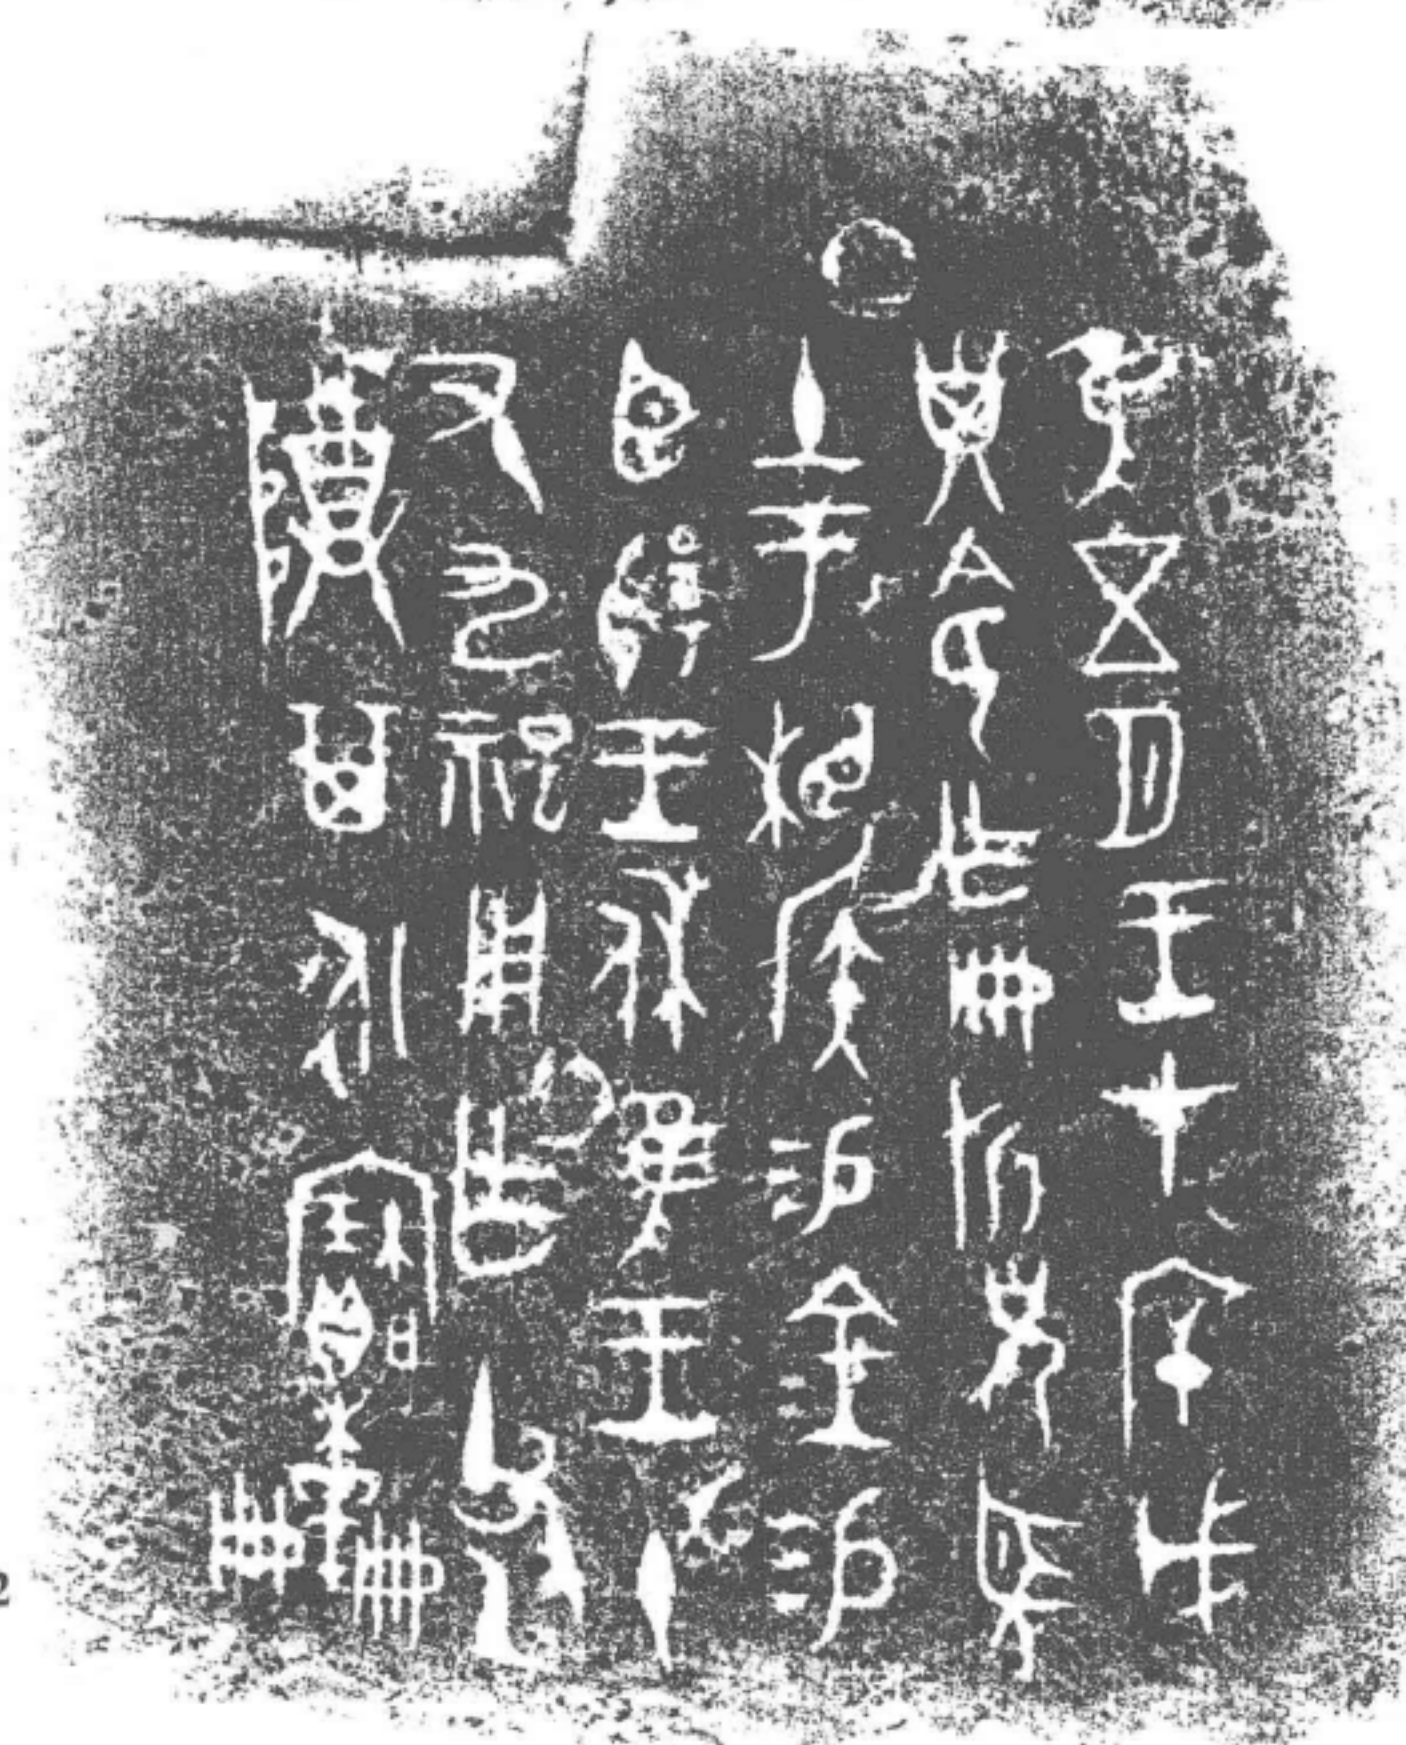 隹五月王才斥戊
子令乍冊折兄朢
土于相侯易金易
臣揚王休隹王十
又九祀用乍父乙
尊其永寶木羊冊